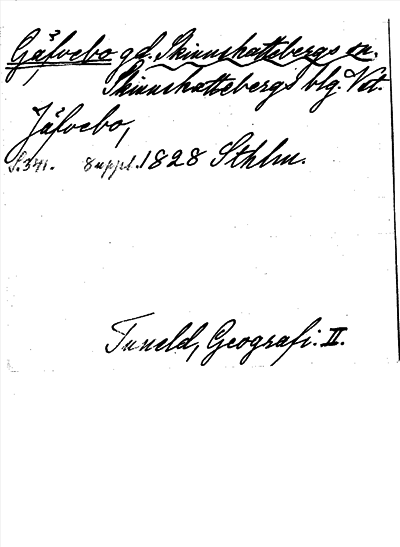 Gäfvebo gd. Skinnskattebergs sn.
Skinnskattebergs blg. Vst.
Jäfvebo,
S. 341. Suppl. 1828 Sthlm.
Tuneld, Geografi. II.